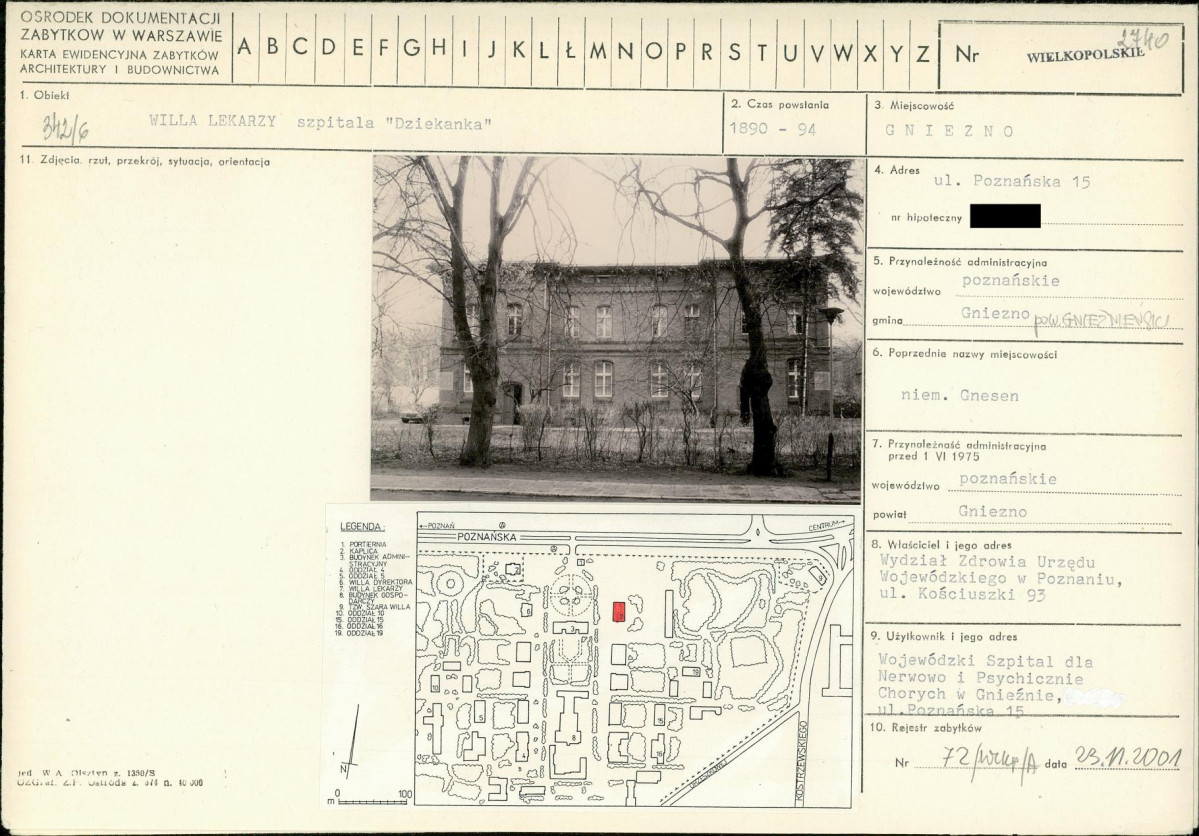 OSRODEK DOKUMENTACJI
ZABYTKOW W WARSZAWIE
KARTA EWIDENCYJNA ZABYTKÓW
ARCHITEKTURY I BUDOWNICTWA
A B C D E F G H I J K L Ł M N O P R S T U V W X Y Z
Nr
2740
WIELKOPOLSKIE
1. Obiekt
342/6
WILLA LEKARZY szpitala "Dziekanka"
2. Czas powstania
1890 - 94
3. Miejscowość
GNIEZNO
11. Zdjęcia. rzut, przekrój, sytuacja, orientacja
4. Adres
ul. Poznańska 15
nr hipoteczny
5. Przynależność administracyjna
województwo poznańskie
gmina Gniezno pow. GNIEŹNIEŃSKI
6. Poprzednie nazwy miejscowości
niem. Gnesen
7. Przynależność administracyjna
przed 1 VI 1975
województwo poznańskie
powiat Gniezno
8. Właściciel i jego adres
Wydział Zdrowia Urzędu
Wojewódzkiego w Poznaniu,
ul. Kościuszki 93
9. Użytkownik i jego adres
Wojewódzki Szpital dla
Nerwowo i Psychicznie
Chorych w Gnieźnie,
ul.Poznańska 15
10. Rejestr zabytków
Nr 72/Wlkp/A data 23.11.2001
LEGENDA:
1. PORTIERNIA
2. KAPLICA
3. BUDYNEK ADMINI-
STRACYJNY
4. ODDZIAŁ 4
5. ODDZIAŁ 5
6. WILLA DYREKTORA
7. WILLA LEKARZY
8. BUDYNEK GOSPO-
DARCZY
9. TZW. SZARA WILLA
10. ODDZIAŁ 10
15. ODDZIAŁ 15
16. ODDZIAŁ 16
19. ODDZIAŁ 19
←POZNAŃ
POZNAŃSKA
CENTRUM→
KOSTRZEWSKIEGO
N
m 0 100